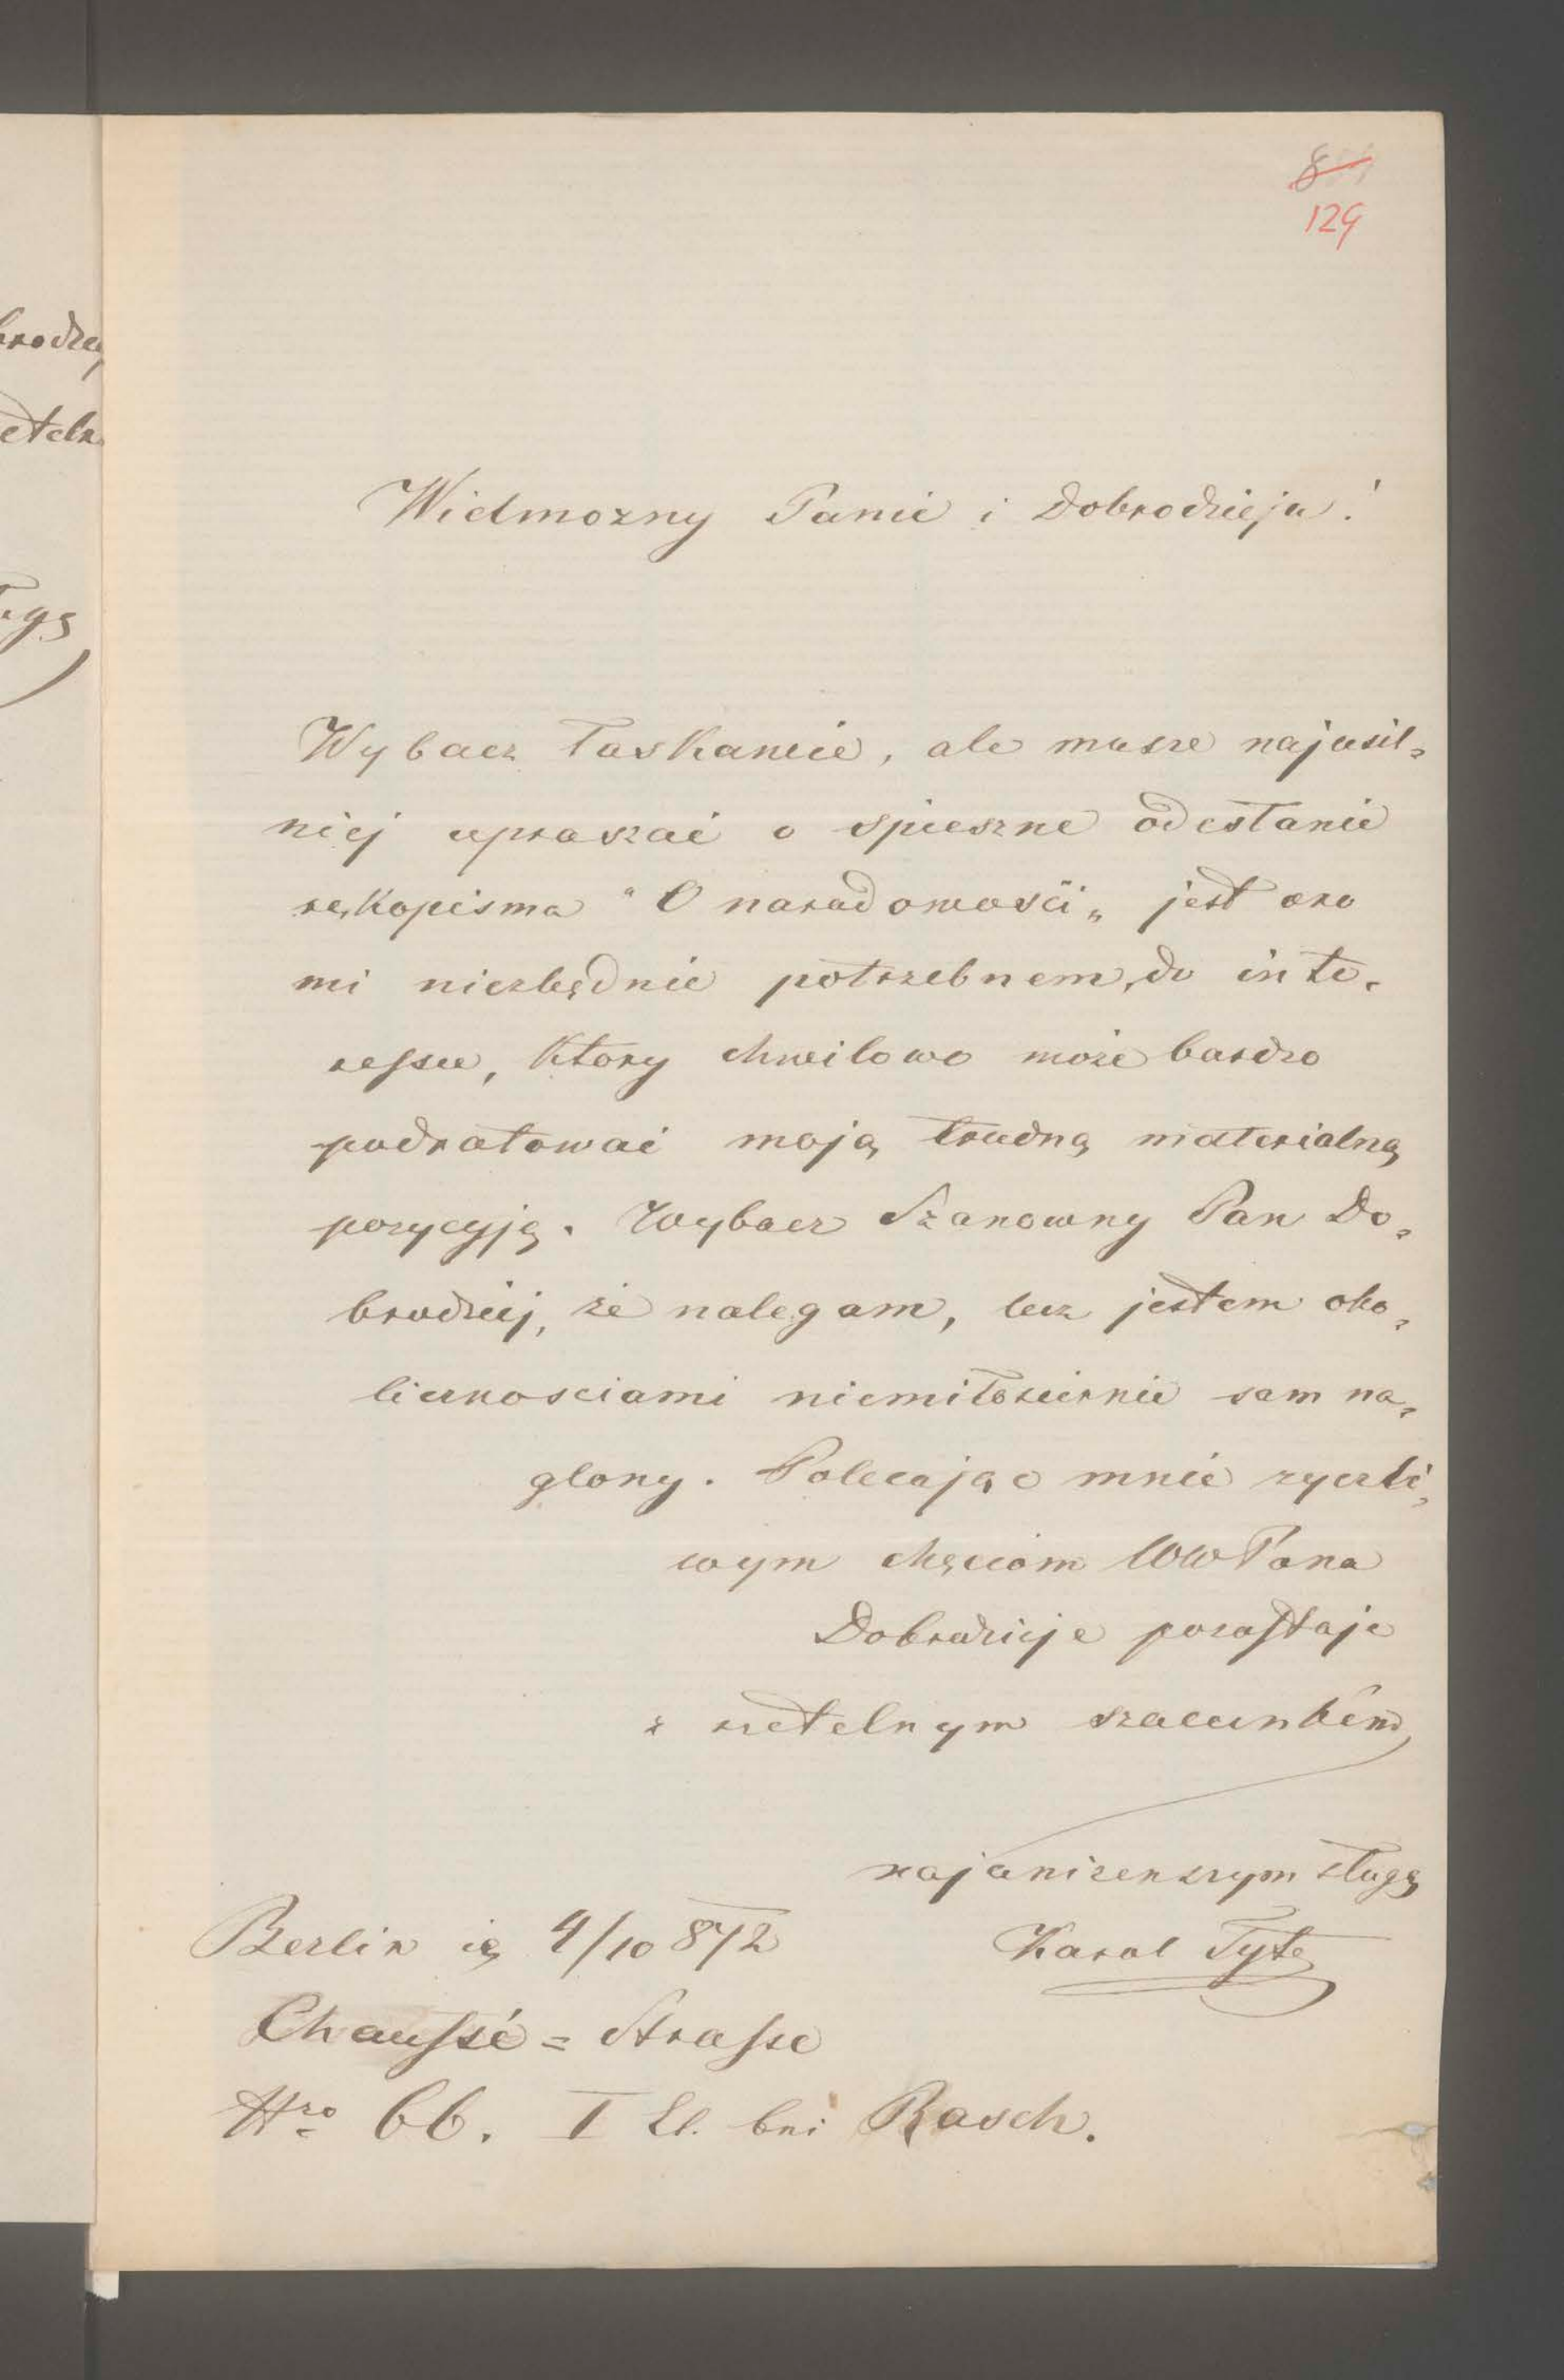 129
Wielmozny Panie i Dobrodzieju!
Wybacz łaskawie, ale musze najusil=
niej upraszać o spieszne odesłanie
rękopisma "O narodowości" jest ono
mi niezbędnie potrzebnem, do inte=
ressu, ktory chwilowo może bardzo
podratować moją trudną materialną
pozycyję. Wybacz Szanowny Pan Do=
brodziej, że nalegam, lecz jestem oko=
licznosciami niemiłosiernie sam na=
glony. Polecając mnie życzli=
wym chęciom WW Pana
Dobrodzieje pozostaje
z rzetelnym szacunkiem
najunizenszym sługą
Berlin 4/10 872
Karol
Chaussé = Strasse
Nro 66. I bei Rasch.
brodze
eteln